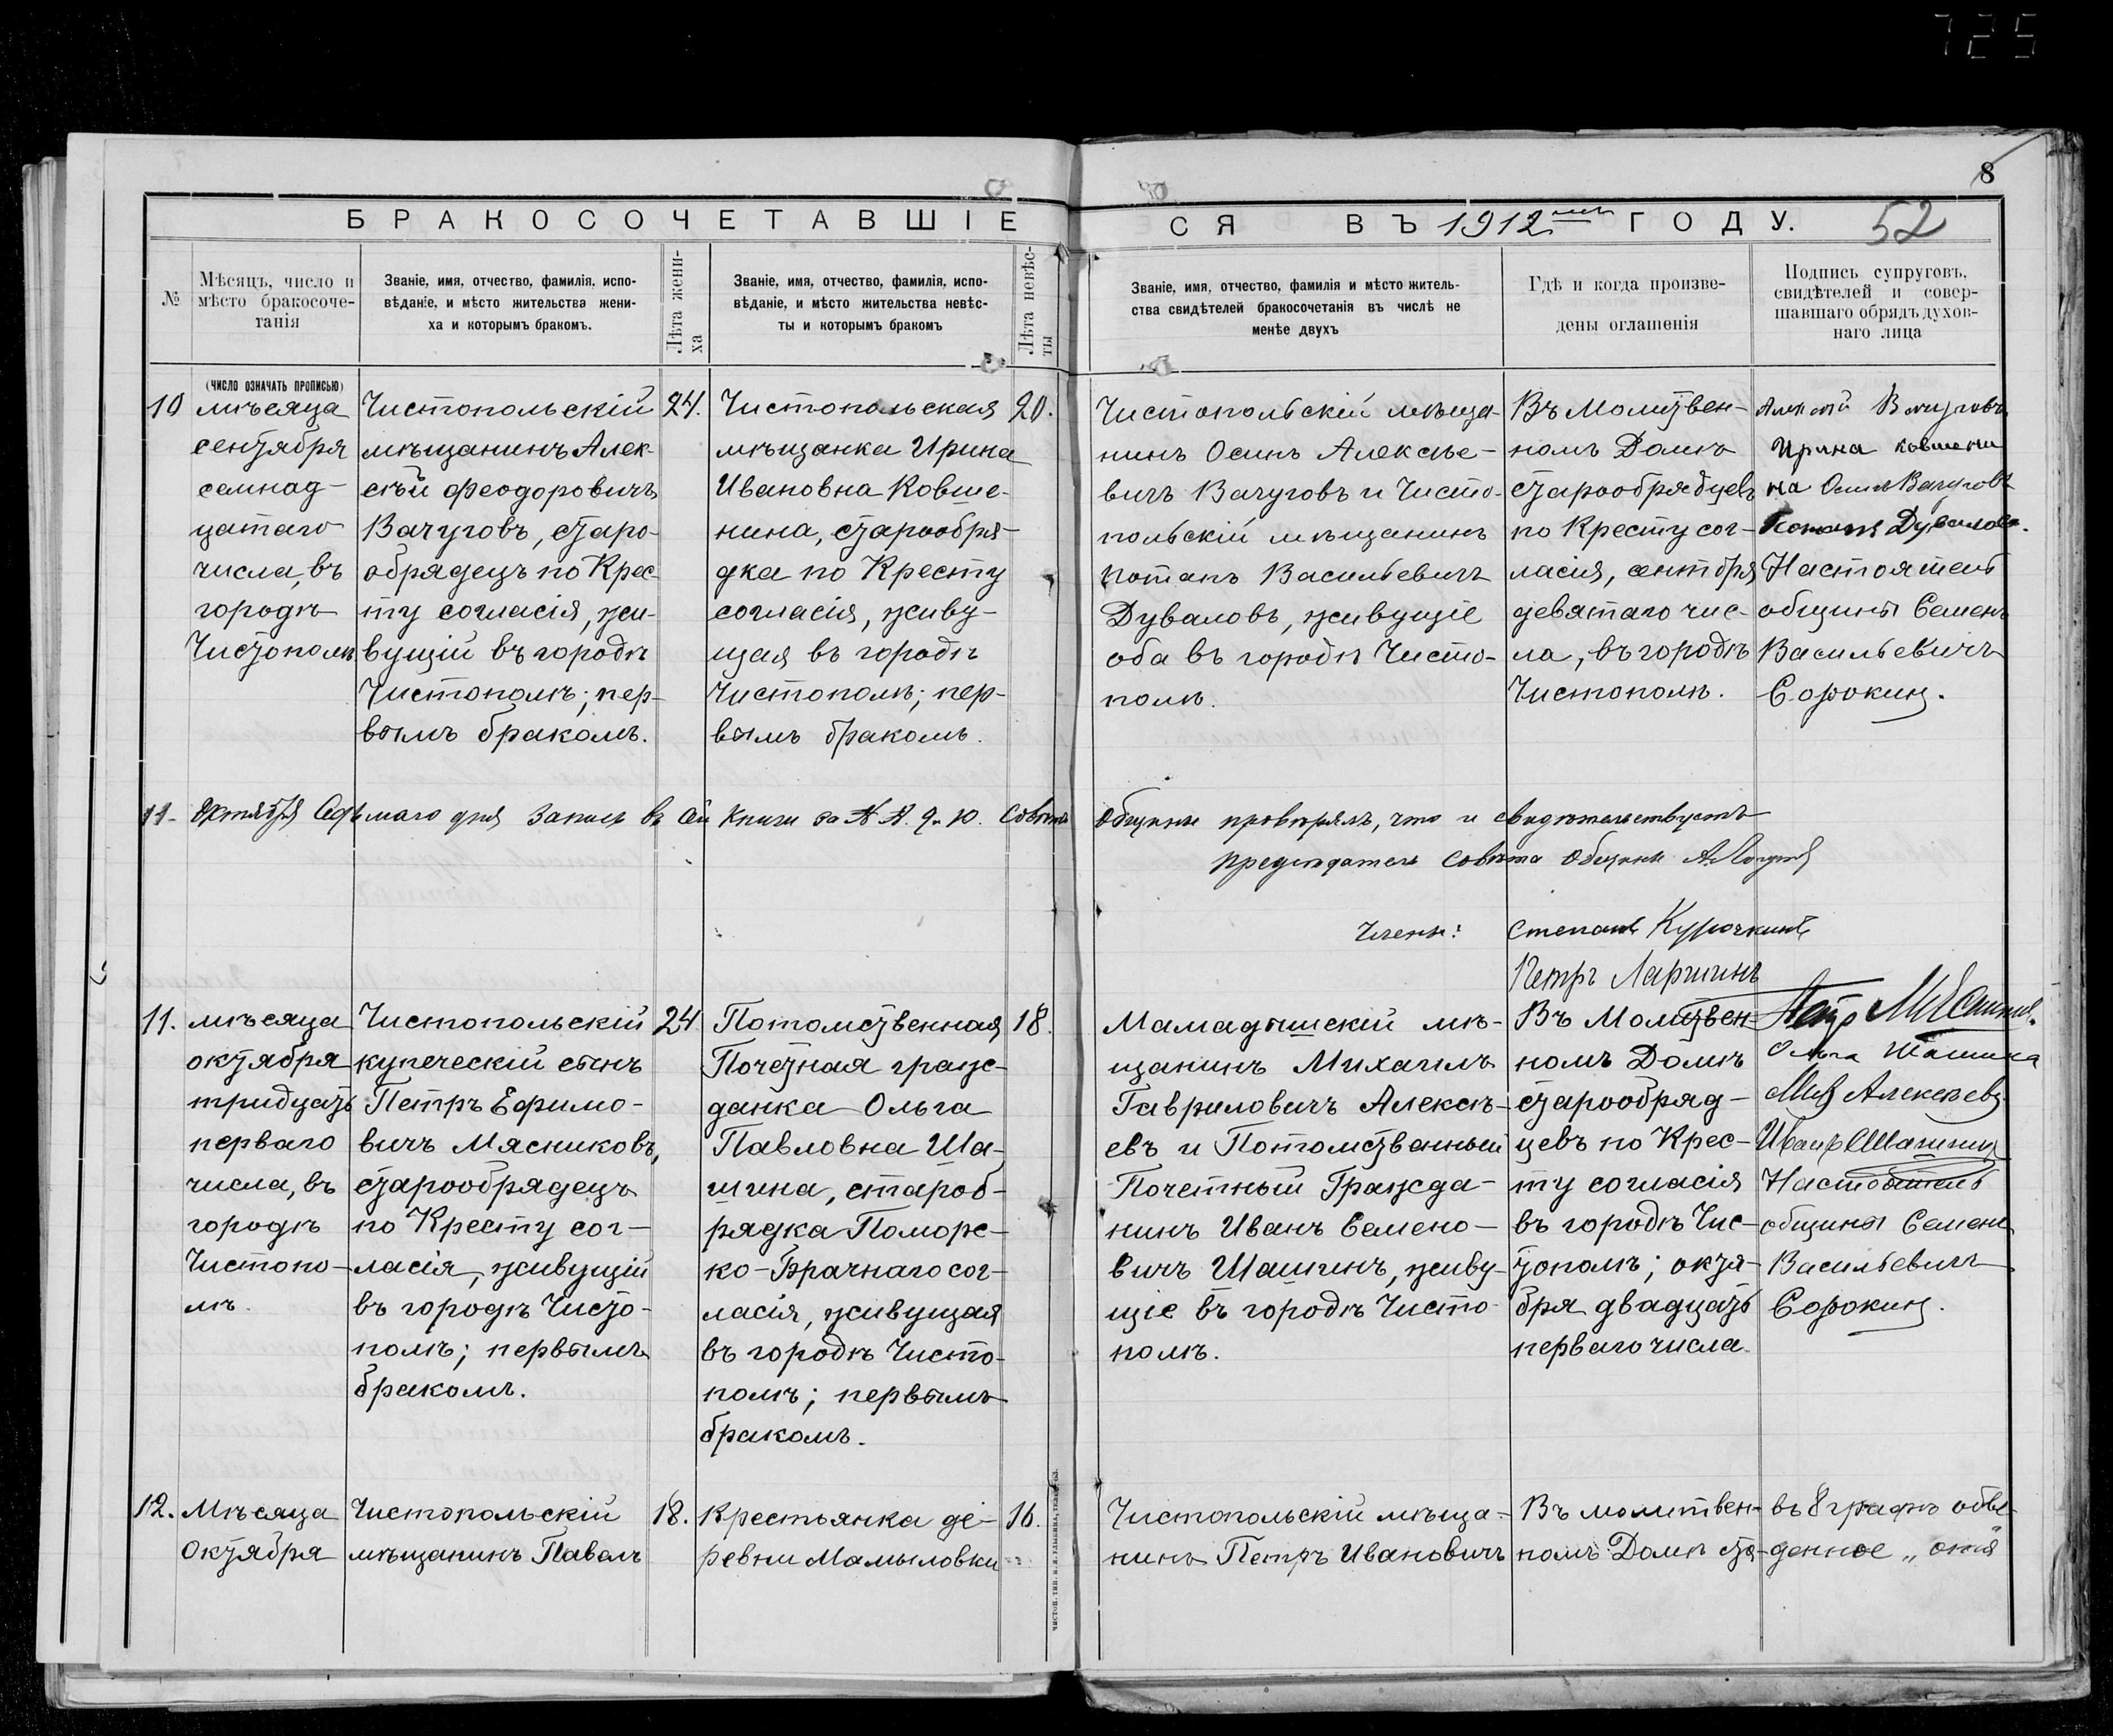 725
8
БРАКОСОЧЕТАВШІЕ
СЯ ВЪ 1912 ГОДУ.
52
№
Мѣсяцъ, число и
мѣсто бракосоче-
танія
Званіе, имя, отчество, фамилія, испо-
вѣданіе, и мѣсто жительства жени-
ха и которымъ бракомъ.
Лѣта жени-
ха
Званіе, имя, отчество, фамилія, испо-
вѣданіе, и мѣсто жительства невѣс-
ты и которымъ бракомъ
Лѣта невѣс-
ты
Званіе, имя, отчество, фамилія и мѣсто житель-
ства свидѣтелей бракосочетанія въ числѣ не
менѣе двухъ
Гдѣ и когда произве-
дены оглашенія
Подпись супруговъ,
свидѣтелей и совер-
шавшаго обрядъ духов-
наго лица
(число означать прописью)
10
мѣсяца
сентября
семнад-
цатаго
числа, въ
городѣ
Чистополѣ
Чистопольскій
мѣщанинъ Алек-
сѣй Феодоровичъ
Вачуговъ, старо-
обрядецъ по Крес-
ту согласія, жи-
вущій въ городѣ
Чистополѣ; пер-
вымъ бракомъ.
24.
Чистопольская
мѣщанка Ирина
Ивановна Ковше-
нина, старообря-
дка по Кресту
согласія, живу-
щая въ городѣ
Чистополѣ; пер-
вымъ бракомъ.
20.
Чистопольскій мѣща-
нинъ Осипъ Алексѣе-
вичъ Вачуговъ и Чисто-
польскій мѣщанинъ
Потапъ Васильевичъ
Дуваловъ, живущіе
оба въ городѣ Чисто-
полѣ.
Въ Молитвен-
номъ Домѣ
старообрядцевъ
по Кресту сог-
ласія, сентября
девятаго чис-
ла, въ городѣ
Чистополѣ.
Алексѣй Вачуговъ
Ирина Ковшени
на Осипъ Вачуговъ
Потапъ Дуваловъ.
Настоятель
общины Семенъ
Васильевичъ
Сорокинъ.
11- Октября Седьмаго дня Запись въ сей Книги за №№ 9 и 10. Совѣтъ
Общины провѣрялъ, что и свидѣтельствуетъ
Предсѣдатель Совѣта Общины
Члены: Степанъ Курочкинъ
Петръ Ларишинъ
11.
мѣсяца
октября
тридцать
перваго
числа, въ
городѣ
Чистопо-
лѣ.
Чистопольскій
купеческій сынъ
Петръ Ефимо-
вичъ Мясниковъ,
старообрядецъ
по Кресту сог-
ласія, живущій
въ городѣ Чисто-
полѣ; первымъ
бракомъ.
24
Потомственная
Почетная граж-
данка Ольга
Павловна Ша-
шина, староб-
рядка Поморс-
ко-Брачнаго сог-
ласія, живущая
въ городѣ Чисто-
полѣ; первымъ
бракомъ.
18.
Мамадышскій мѣ-
щанинъ Михаилъ
Гавриловичъ Алексѣ-
евъ и Потомственный
Почетный Гражда-
нинъ Иванъ Семено-
вичъ Шашинъ, живу-
щіе въ городѣ Чисто-
полѣ.
Въ Молитвен-
номъ Домѣ
старообряд-
цевъ по Крес-
ту согласія
въ городѣ Чис-
тополѣ; октя-
бря двадцать
перваго числа
Петръ
Ольга Шашина
Мих Алексѣевъ
Иванъ Шашинъ
Настоятель
общины Семенъ
Васильевичъ
Сорокинъ.
12.
Мѣсяца
Октября
Чистопольскій
мѣщанинъ Павелъ
18.
Крестьянка де-
ревни Мамыловки
16.
Чистопольскій мѣща-
нинъ Петръ Ивановичъ
Въ молитвен-
номъ Домѣ ста-
въ 8 графѣ обве-
денное